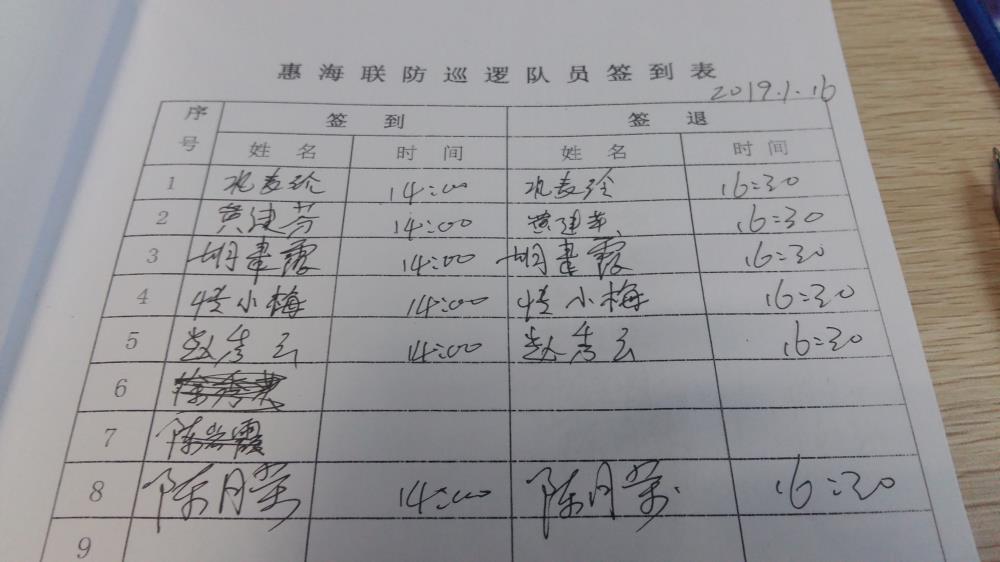 惠海联防巡逻队员签到表
2019.1.16
序号 签到 签退
姓名 时间 姓名 时间
1 14:00 16:30
2 黄建芬 14:00 黄建芬 16:30
3 胡聿霞 14:00 胡聿霞 16:30
4 小梅 14:00 小梅 16:30
5 赵秀云 14:00 赵秀云 16:30
6
7 陈霞
8 陈月荣 14:00 陈月荣 16:30
9